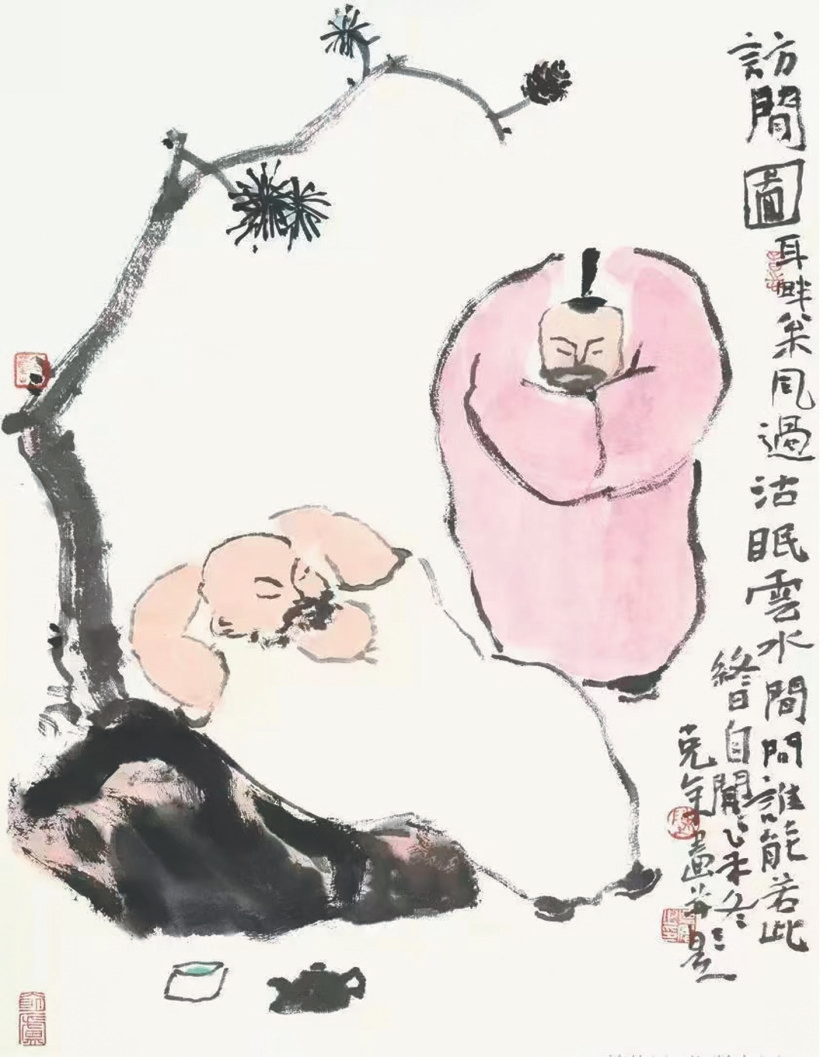 訪閒圖 耳畔枀風過沽眠雲水間問誰能若此
終日自閒乙未冬
克年畫并題